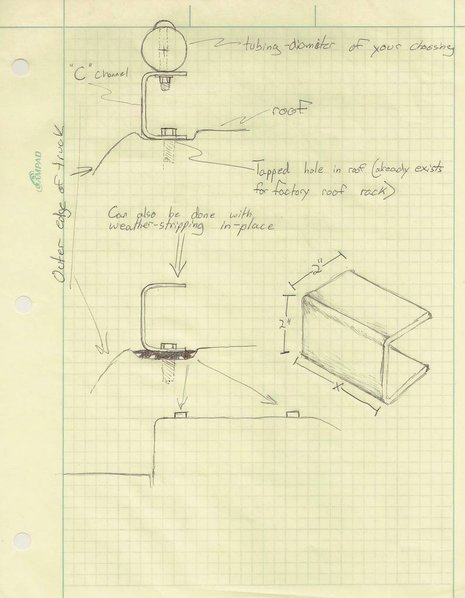 tubing-diameter of your choosing
"C" channel
roof
Outer edge of truck
AMPAD
Tapped hole in roof (already exists
for factory roof rack)
Can also be done with
weather-stripping in-place
2"
2"
x